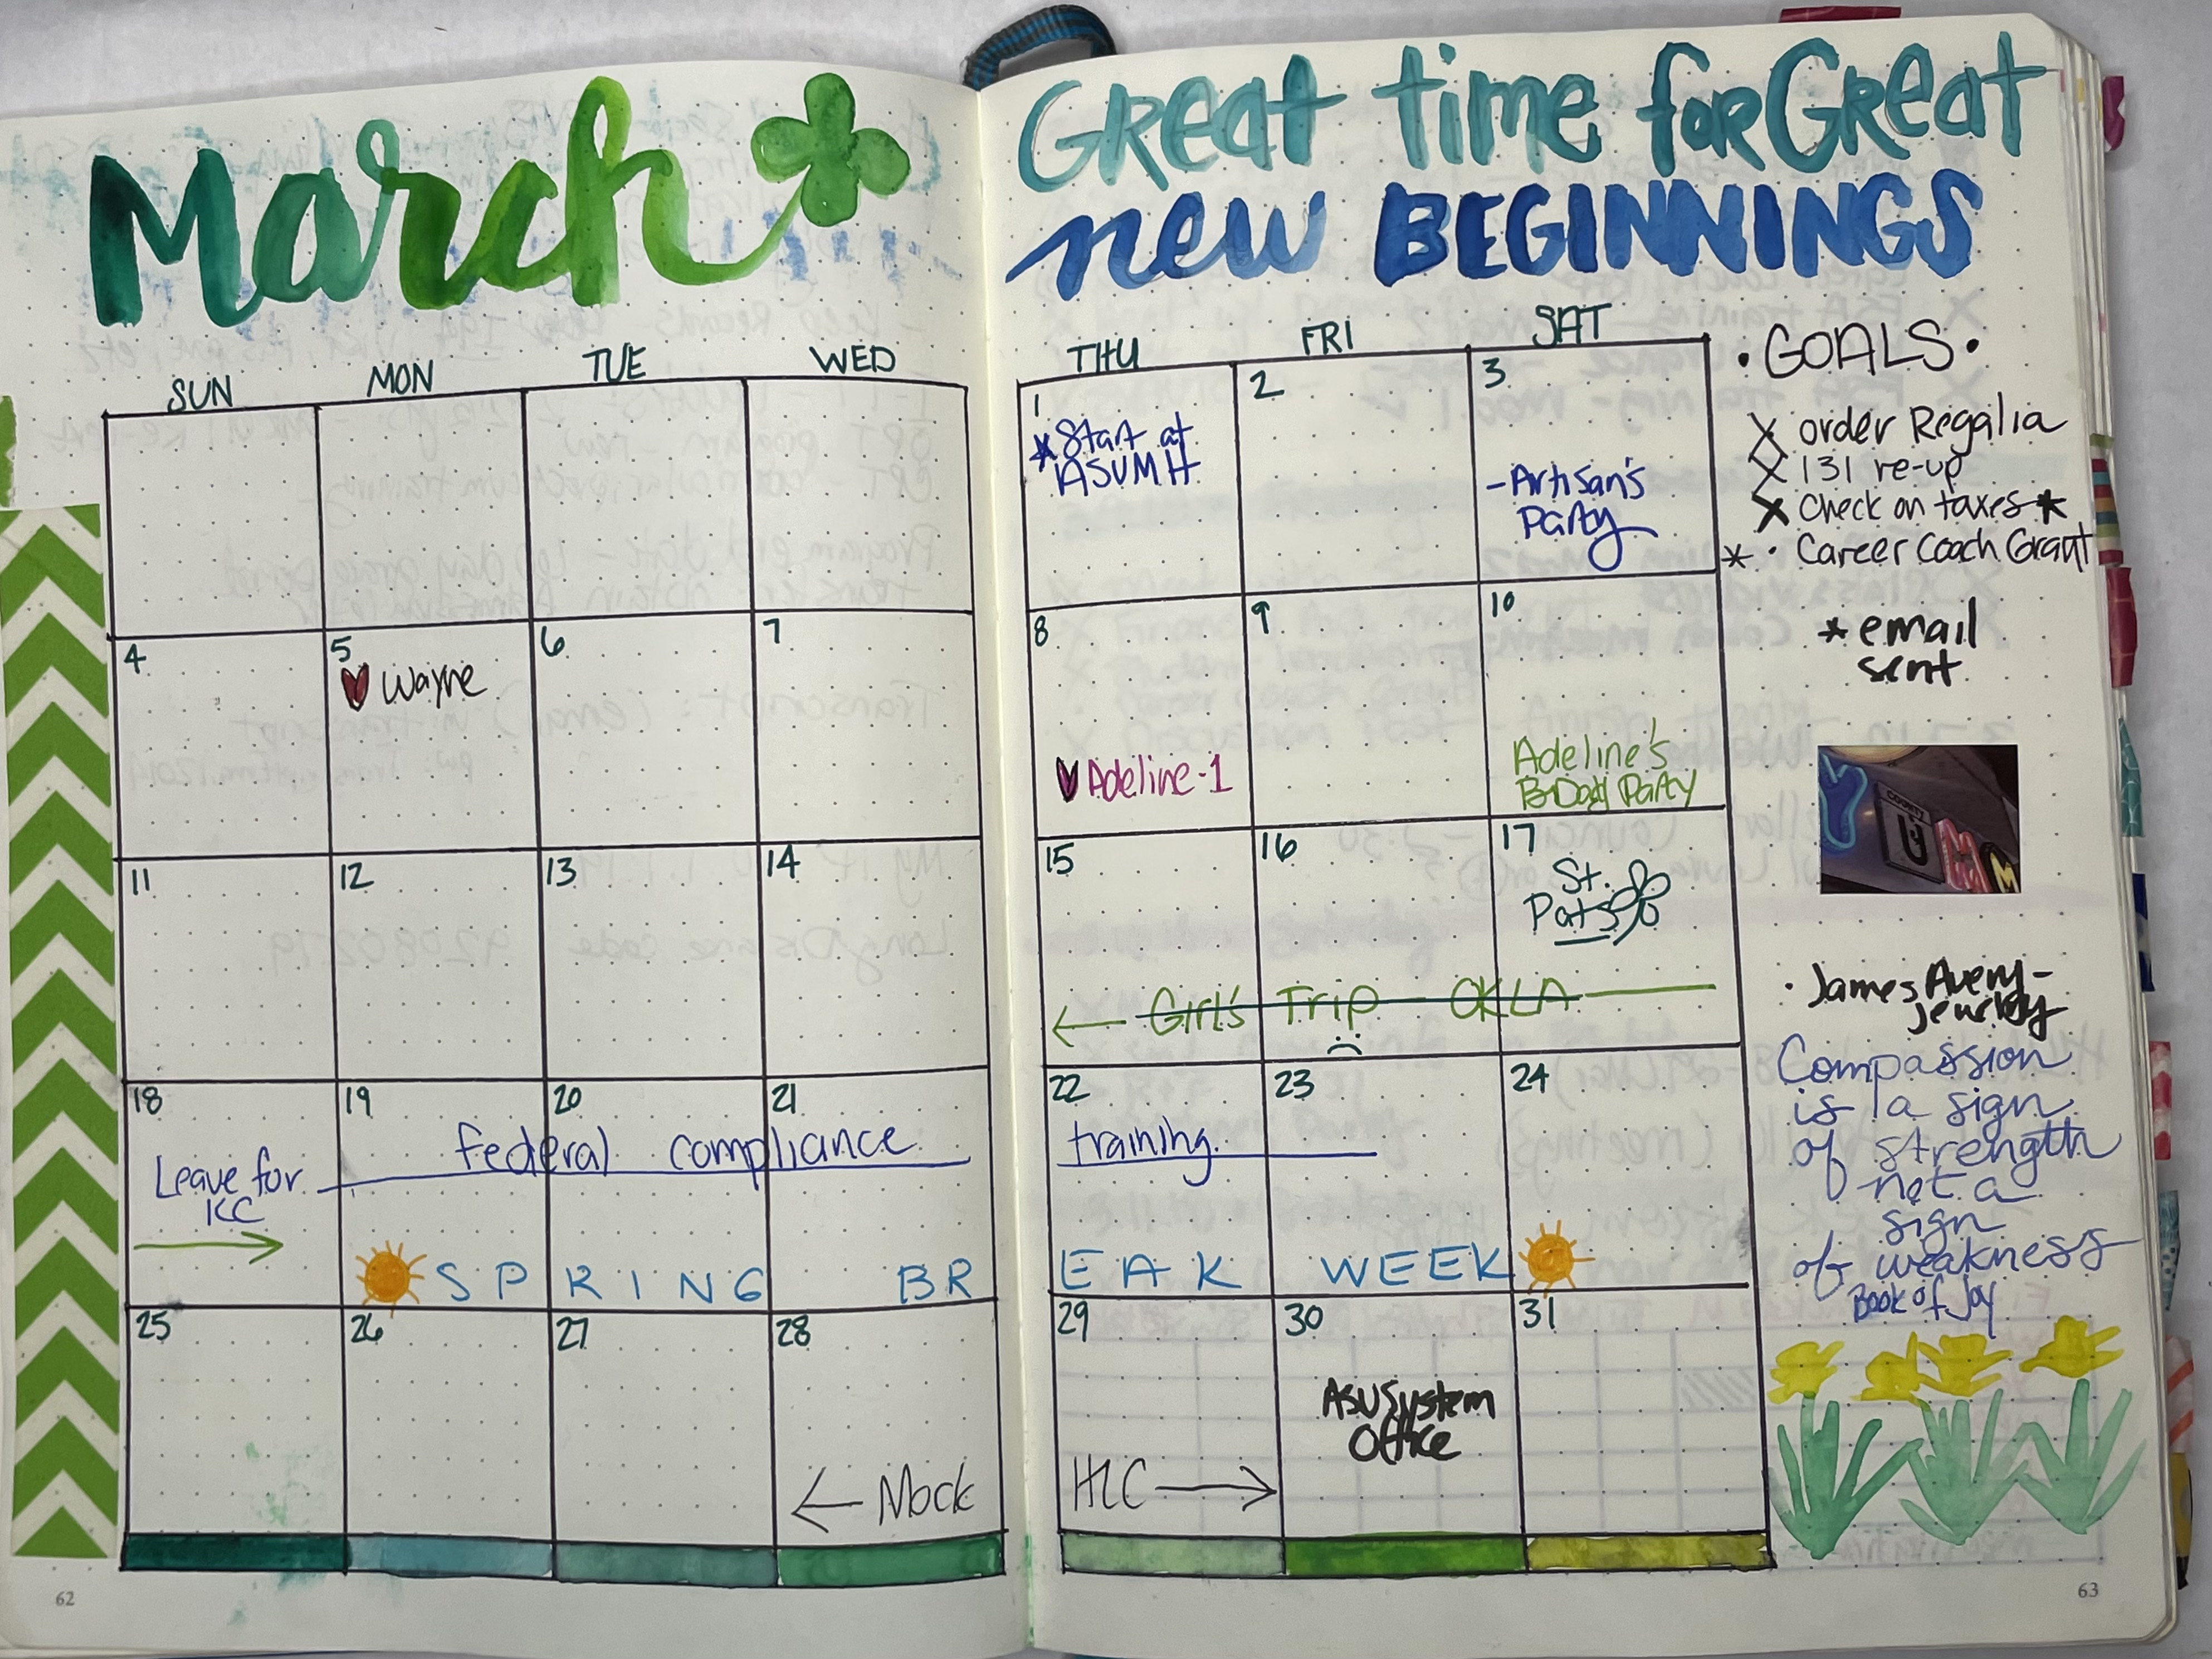 March
GReat time foR GReat
new BEGINNINGS
SUN MON TUE WED THU FRI SAT
1 2 3
*Start at
ASUMH
-Artisan's
Party
4 5 6 7 8 9 10
Wayne
Adeline-1
Adeline's
B-Day Party
11 12 13 14 15 16 17
St.
Pats
Girl's Trip OKLA
18 19 20 21 22 23 24
Leave for
KC
federal compliance training
SPRING BREAK WEEK
25 26 27 28 29 30 31
ASU System
Office
← Mock HLC →
• GOALS •
X order Regalia
X 131 re-up
X Check on taxes *
* • Career Coach Grant
* email
sent
• James Avery-
jewelry
Compassion
is a sign
of strength
not a
sign
of weakness
Book of Joy
62
63